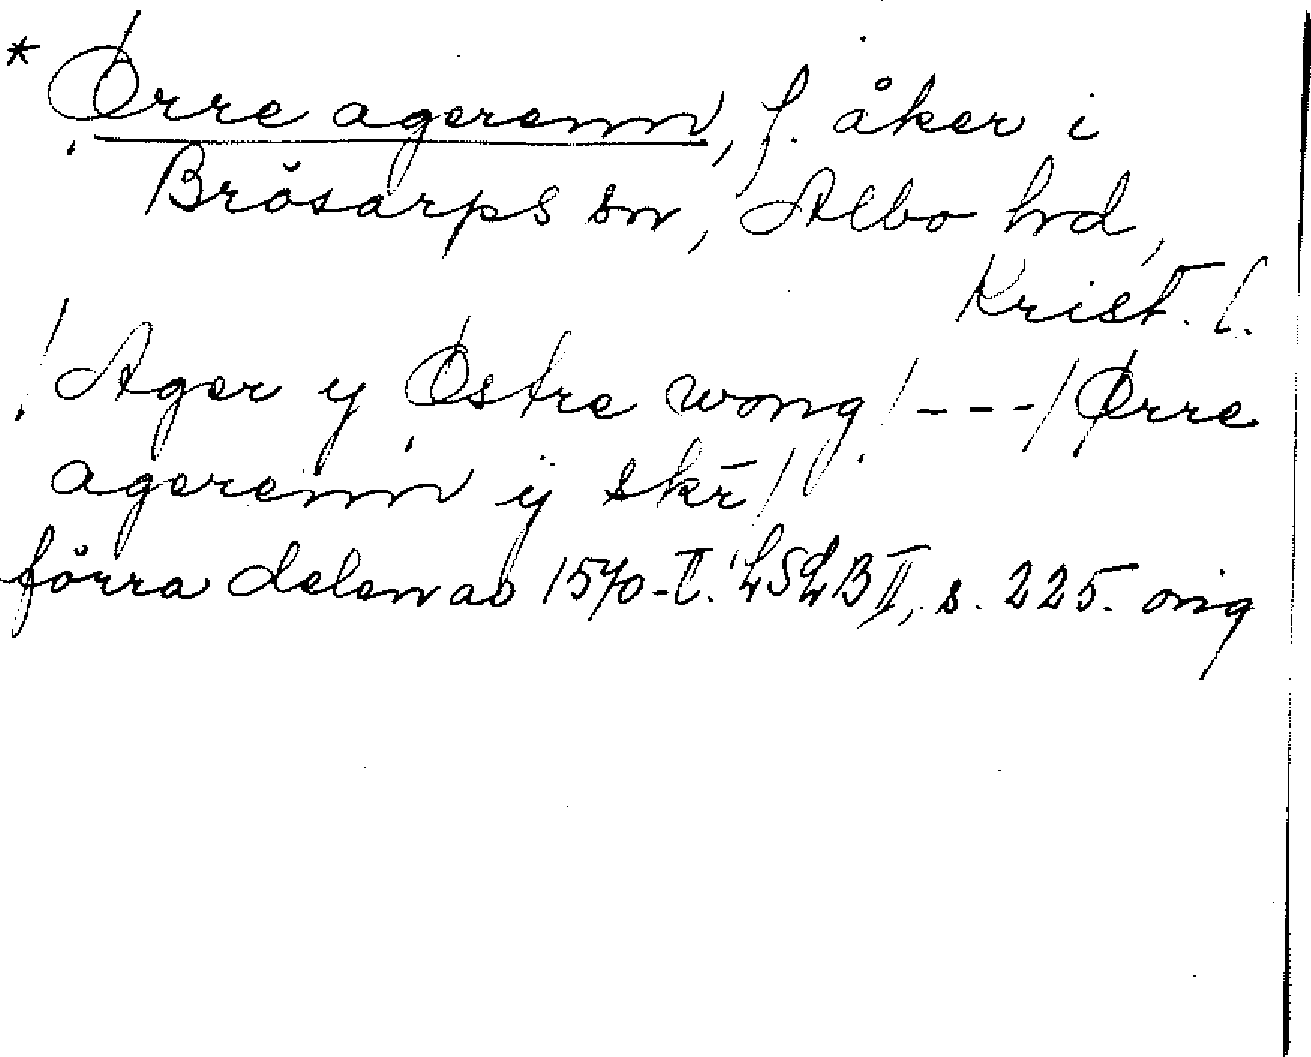 * Ørre agerenn, f. åker i
Brösarps sn, Albo hd,
Krist. l.
! Ager y Østre wong! --- / Ørre
agerenn ÿ skr̄ /
förra delen av 1570-t. LSLB II, s. 225. orig